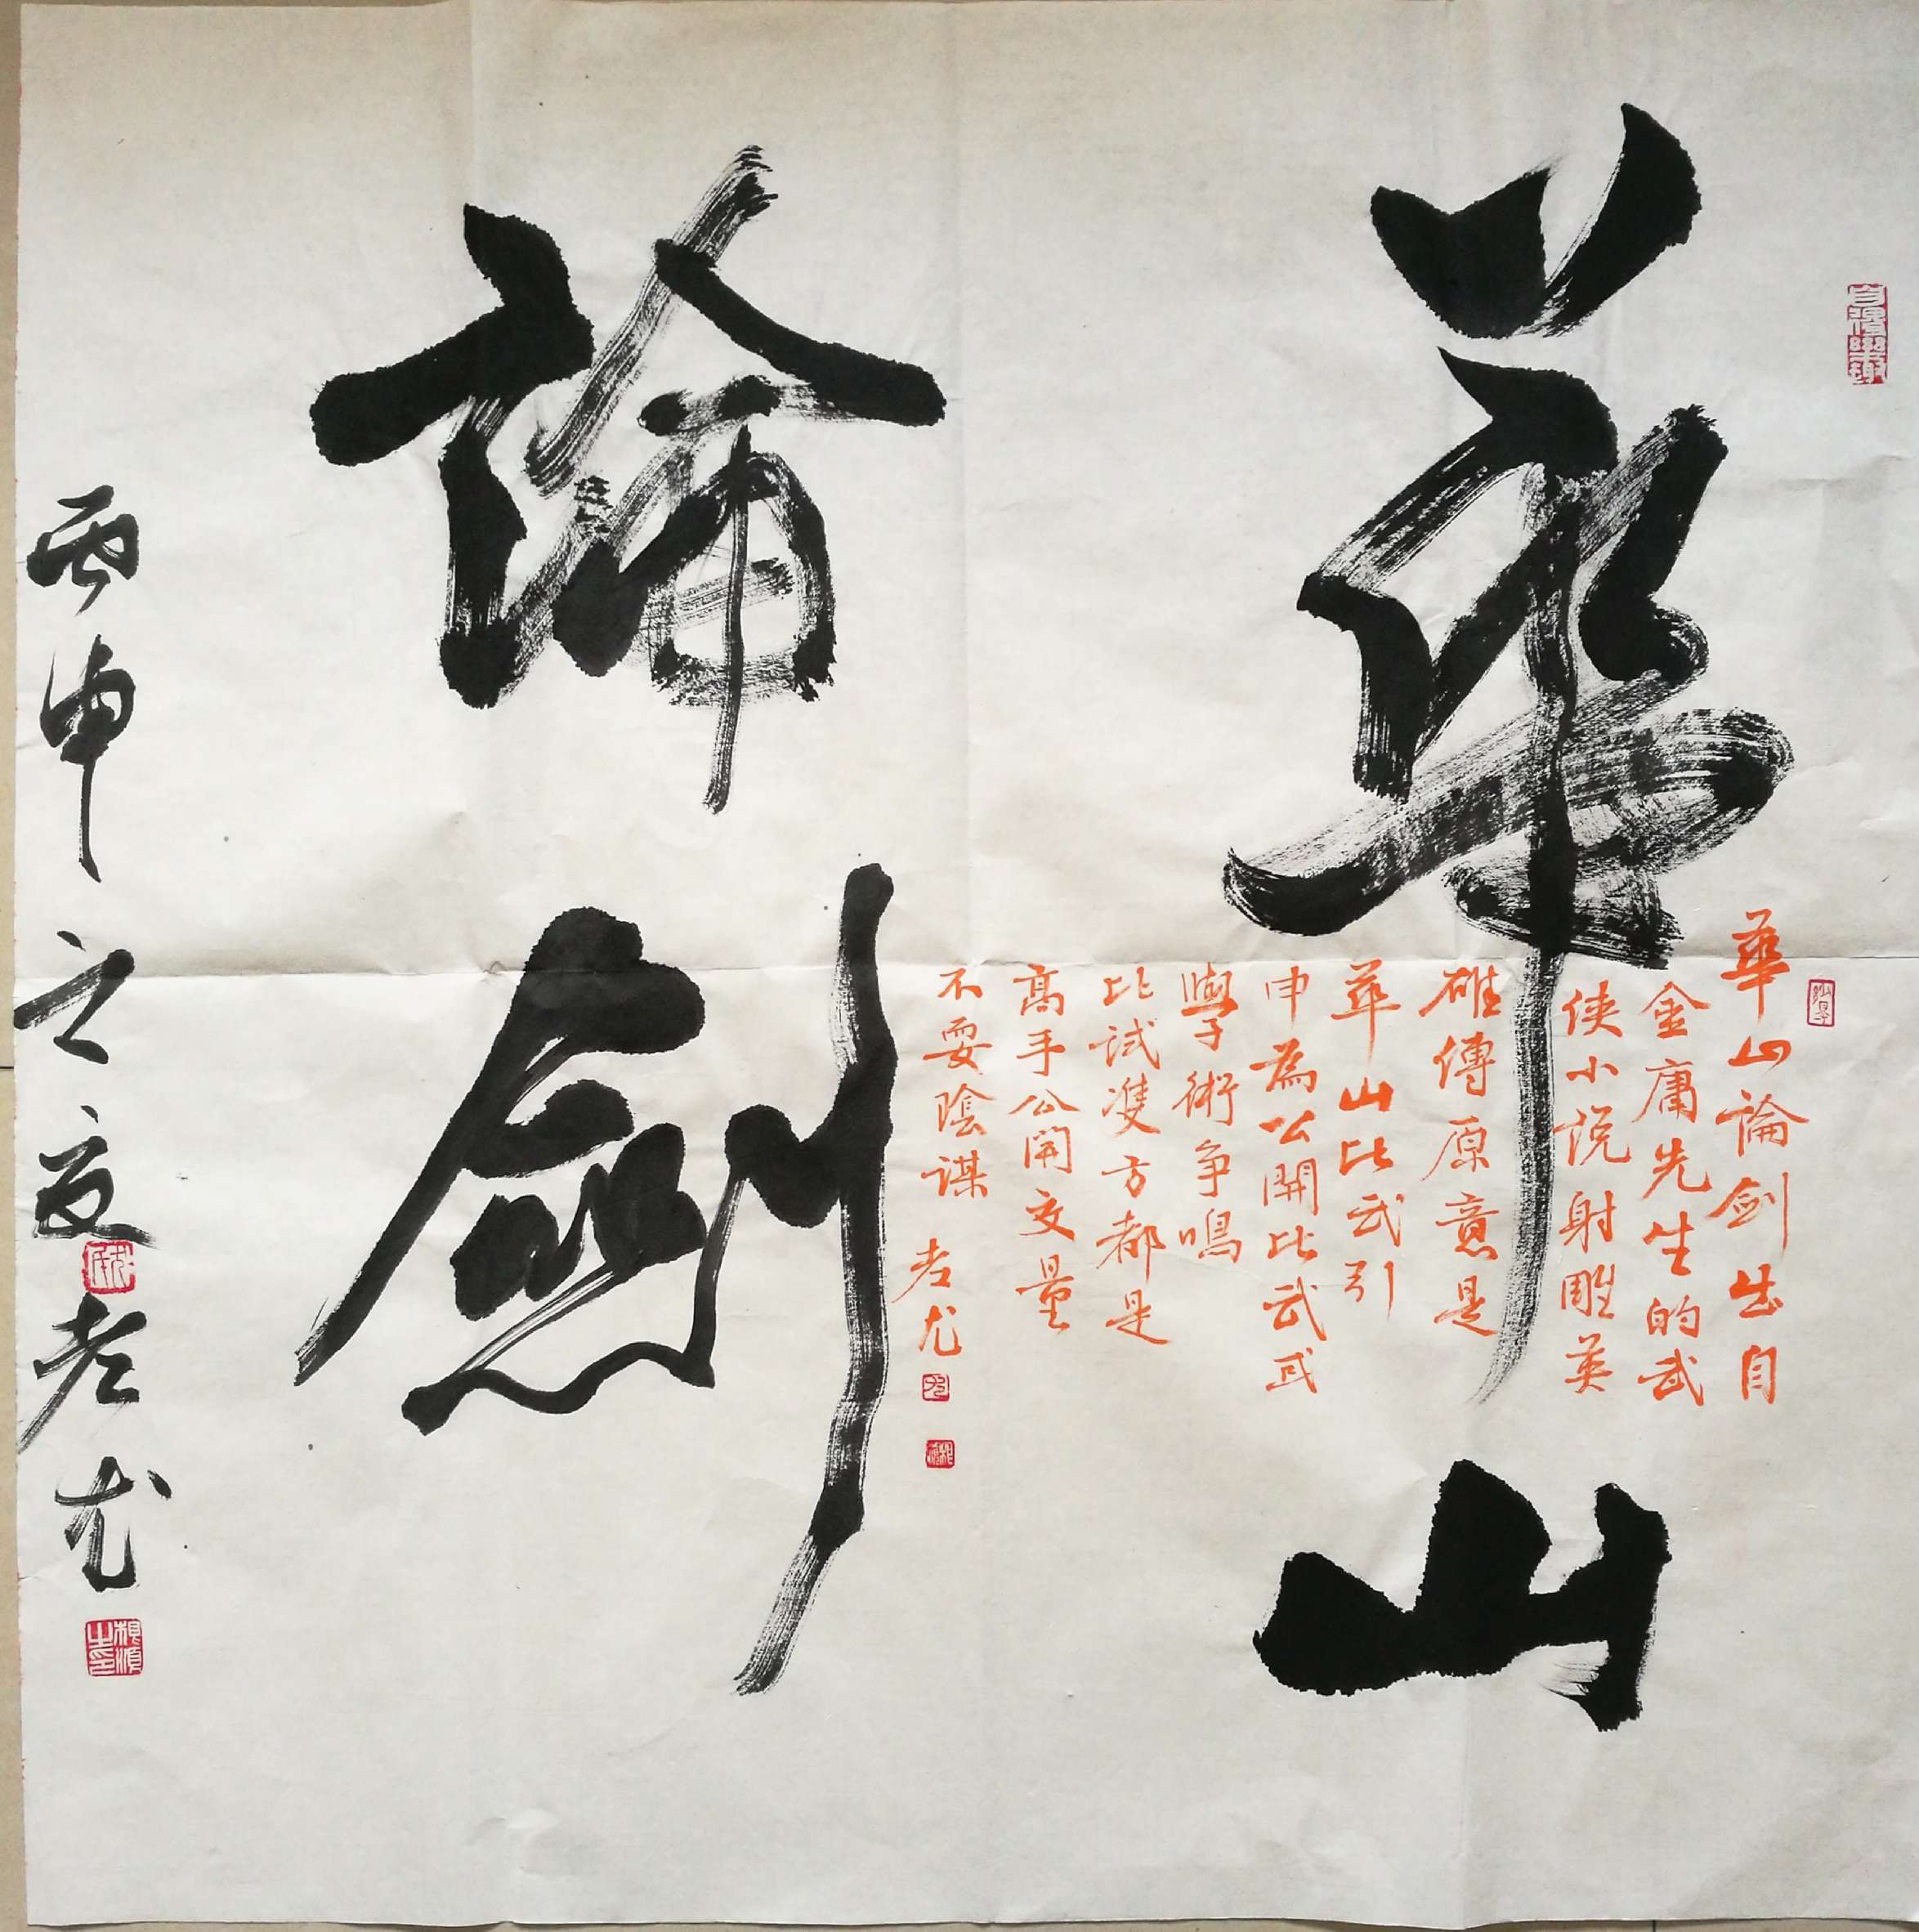 華山
華山論剑出自
金庸先生的武
侠小说射雕英
雄傳原意是
華山比武引
申為公開比武或
學術争鳴
比试隻方都是
高手公開交量
不耍陰謀 老尤
論劍
丙申之夏老尤